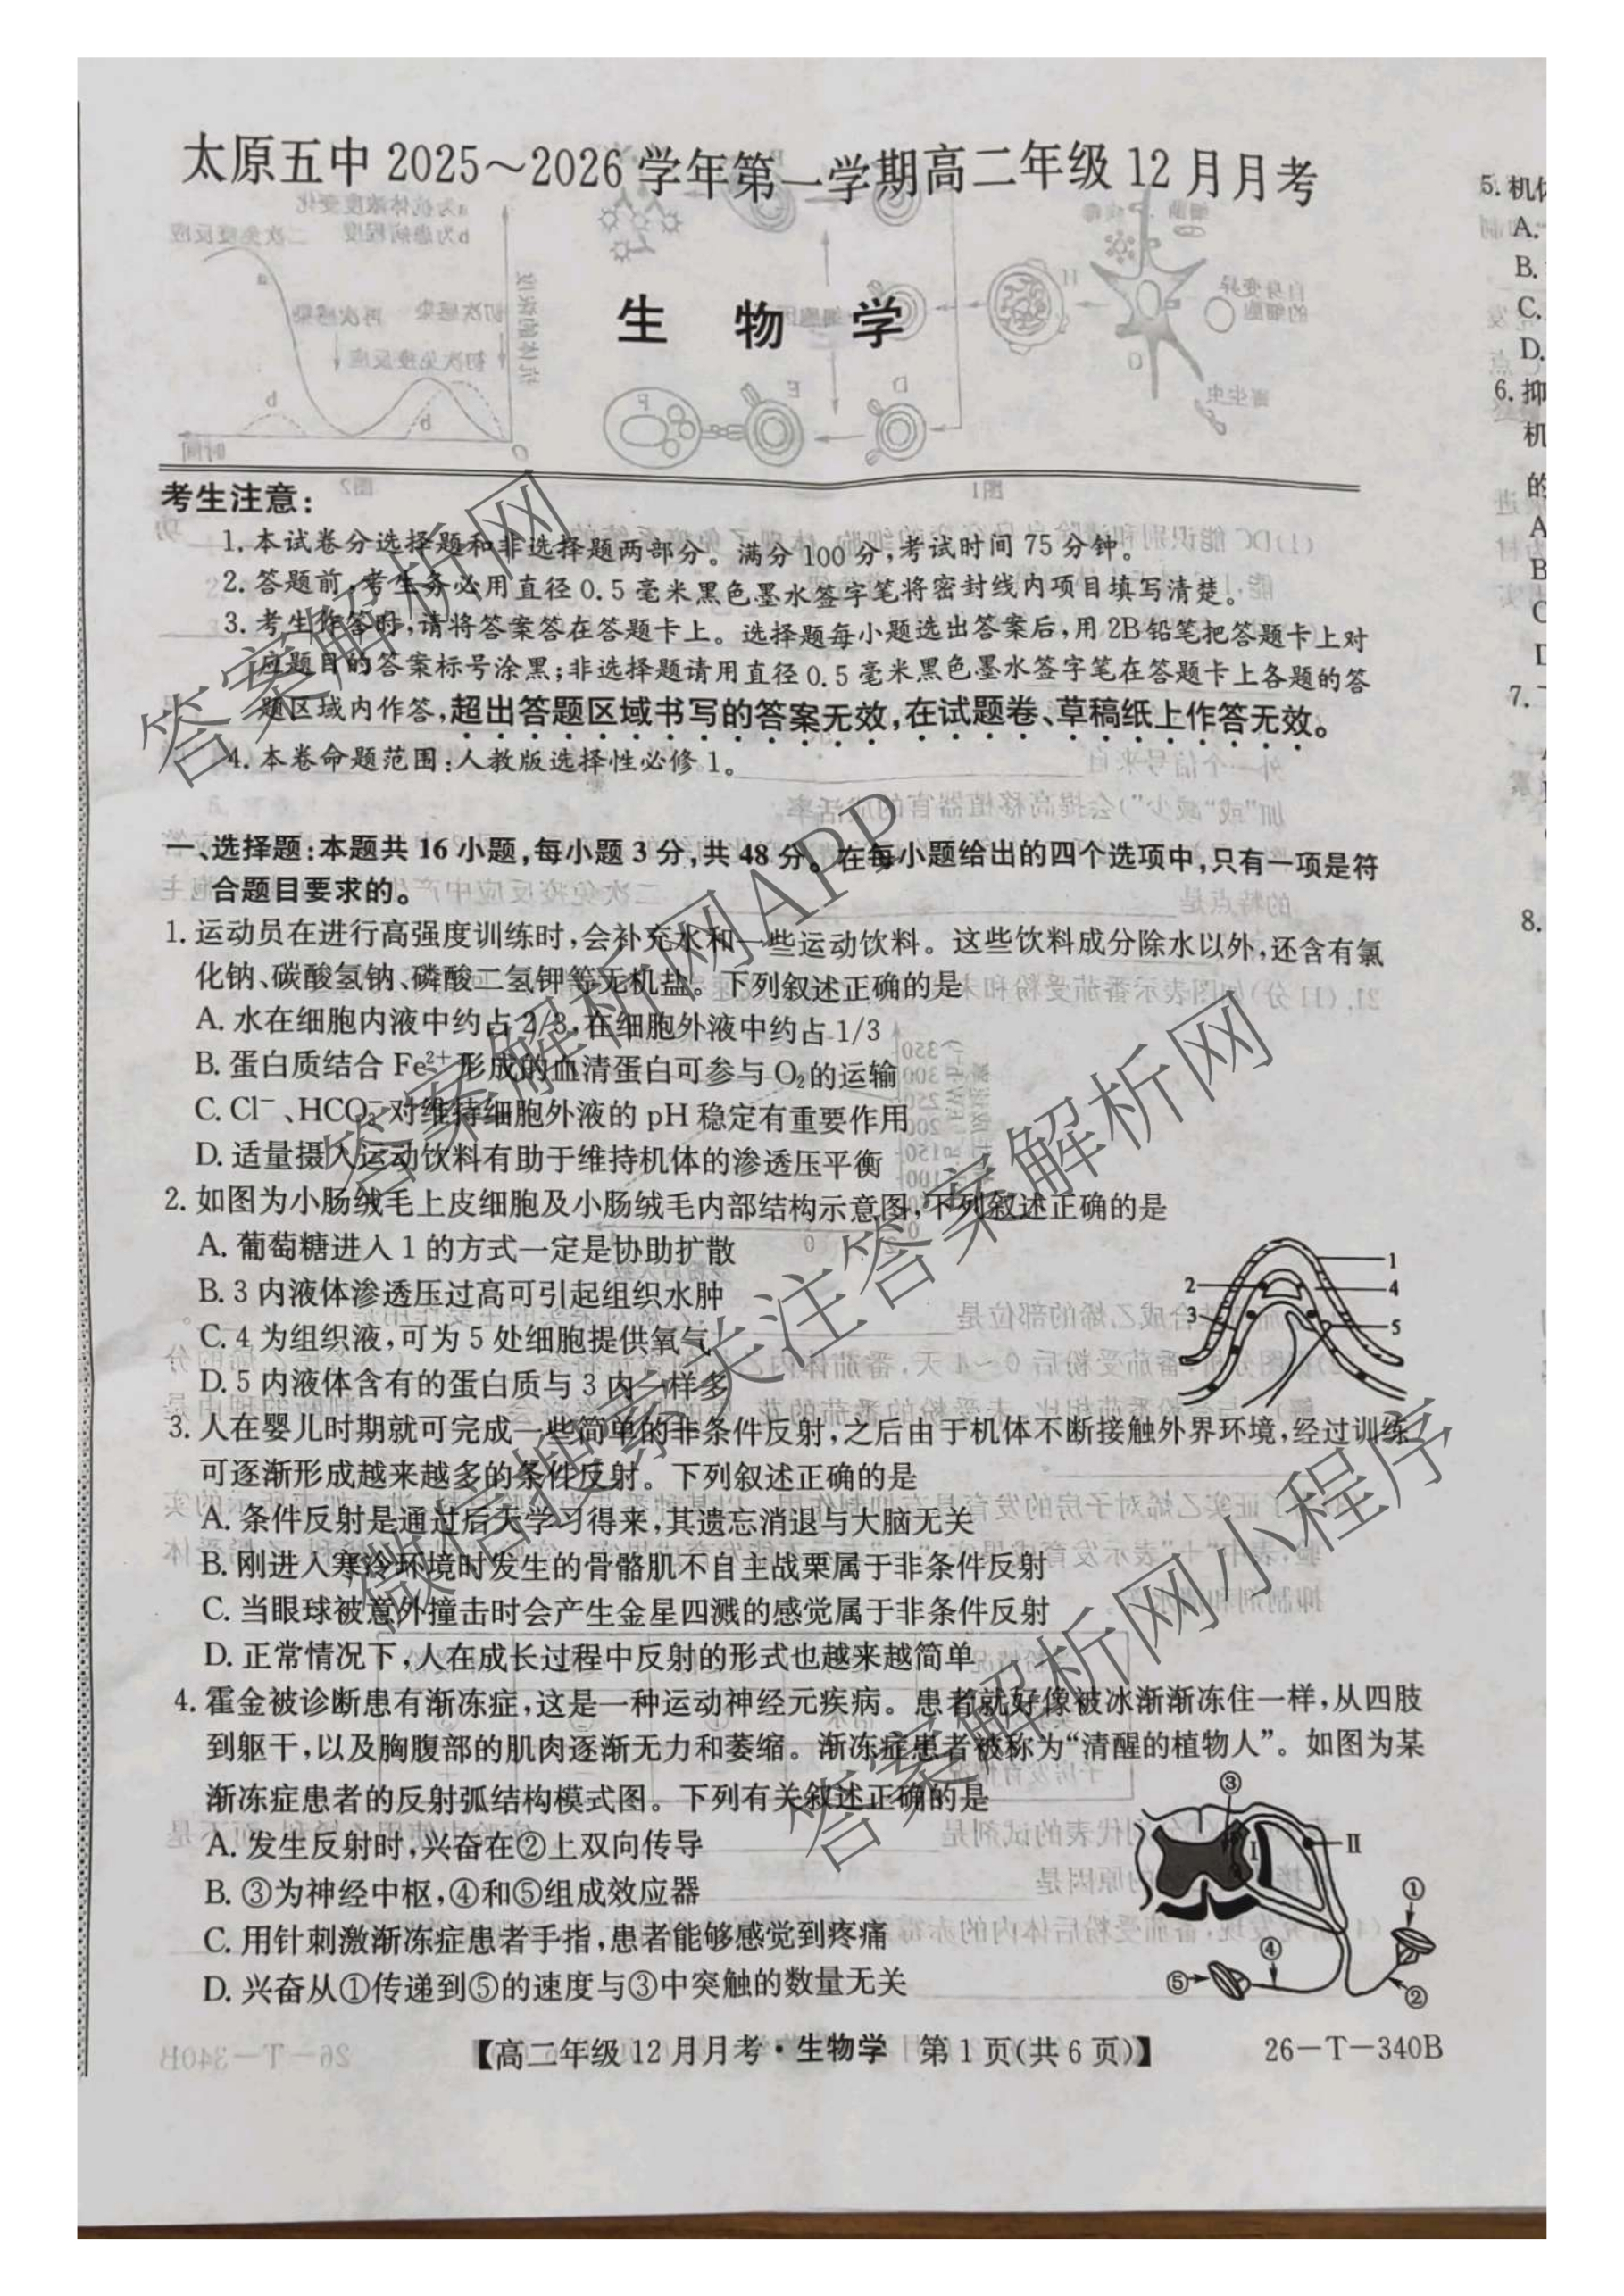 太原五中 2025～2026 学年第一学期高二年级 12 月月考
生 物 学
考生注意：
1. 本试卷分选择题和非选择题两部分。满分 100 分，考试时间 75 分钟。
2. 答题前，考生务必用直径 0.5 毫米黑色墨水签字笔将密封线内项目填写清楚。
3. 考生作答时，请将答案答在答题卡上。选择题每小题选出答案后，用 2B 铅笔把答题卡上对
应题目的答案标号涂黑；非选择题请用直径 0.5 毫米黑色墨水签字笔在答题卡上各题的答
题区域内作答，超出答题区域书写的答案无效，在试题卷、草稿纸上作答无效。
4. 本卷命题范围：人教版选择性必修 1。
一、选择题：本题共 16 小题，每小题 3 分，共 48 分。在每小题给出的四个选项中，只有一项是符
合题目要求的。
1. 运动员在进行高强度训练时，会补充水和一些运动饮料。这些饮料成分除水以外，还含有氯
化钠、碳酸氢钠、磷酸二氢钾等无机盐。下列叙述正确的是
A. 水在细胞内液中约占 2/3，在细胞外液中约占 1/3
B. 蛋白质结合 Fe²⁺ 形成的血清蛋白可参与 O₂ 的运输
C. Cl⁻、HCO₃⁻ 对维持细胞外液的 pH 稳定有重要作用
D. 适量摄入运动饮料有助于维持机体的渗透压平衡
2. 如图为小肠绒毛上皮细胞及小肠绒毛内部结构示意图，下列叙述正确的是
A. 葡萄糖进入 1 的方式一定是协助扩散
B. 3 内液体渗透压过高可引起组织水肿
C. 4 为组织液，可为 5 处细胞提供氧气
D. 5 内液体含有的蛋白质与 3 内一样多
1
2
4
3
5
3. 人在婴儿时期就可完成一些简单的非条件反射，之后由于机体不断接触外界环境，经过训练
可逐渐形成越来越多的条件反射。下列叙述正确的是
A. 条件反射是通过后天学习得来，其遗忘消退与大脑无关
B. 刚进入寒冷环境时发生的骨骼肌不自主战栗属于非条件反射
C. 当眼球被意外撞击时会产生金星四溅的感觉属于非条件反射
D. 正常情况下，人在成长过程中反射的形式也越来越简单
4. 霍金被诊断患有渐冻症，这是一种运动神经元疾病。患者就好像被冰渐渐冻住一样，从四肢
到躯干，以及胸腹部的肌肉逐渐无力和萎缩。渐冻症患者被称为“清醒的植物人”。如图为某
渐冻症患者的反射弧结构模式图。下列有关叙述正确的是
A. 发生反射时，兴奋在②上双向传导
B. ③为神经中枢，④和⑤组成效应器
C. 用针刺激渐冻症患者手指，患者能够感觉到疼痛
D. 兴奋从①传递到⑤的速度与③中突触的数量无关
③
Ⅰ
Ⅱ
①
④
⑤
②
【高二年级 12 月月考·生物学 第 1 页(共 6 页)】
26－T－340B
5. 机
A.
B.
C.
D.
6. 抑
机
的
A
B
C
7.
8.
答案解析网
答案解析网APP
微信搜索关注答案解析网
答案解析网小程序